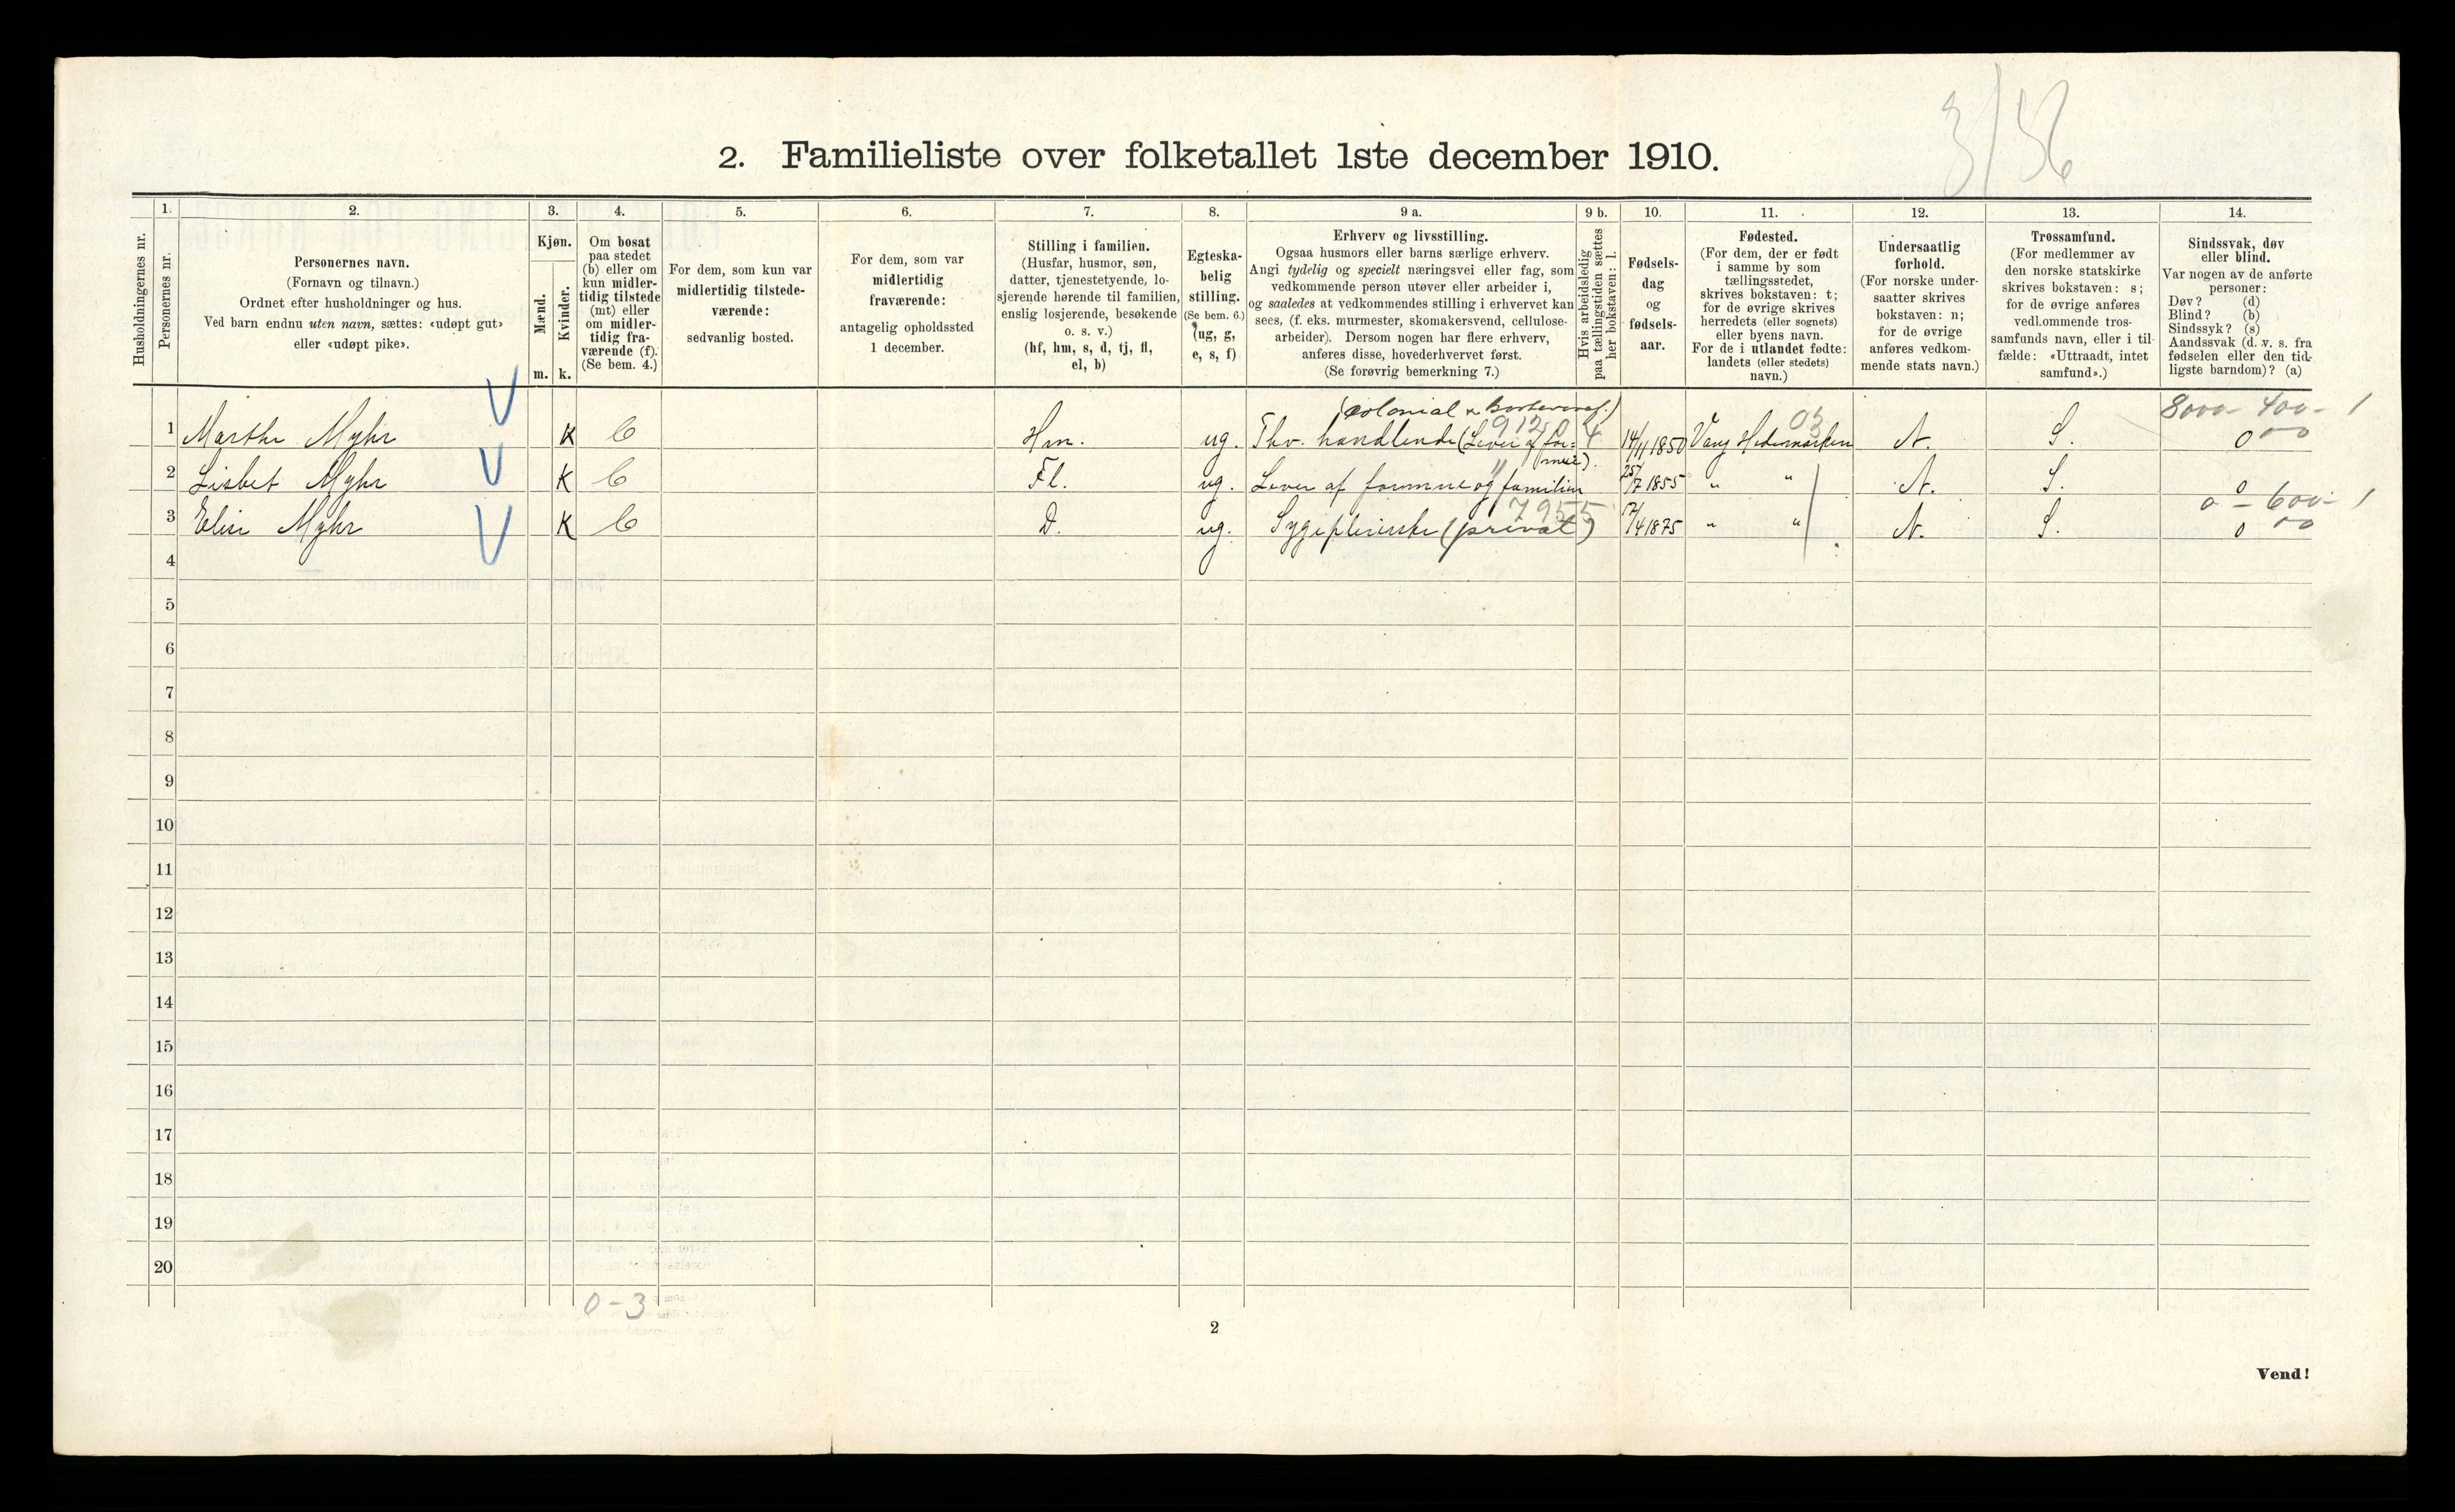 3/56
2. Familieliste over folketallet 1ste december 1910.
Husholdningernes nr.
1.
Personernes nr.
2.
Personernes navn.
(Fornavn og tilnavn.)
Ordnet efter husholdninger og hus.
Ved barn endnu uten navn, sættes: «udøpt gut»
eller «udøpt pike».
3.
Kjøn.
Mænd.
Kvinder.
m. k.
4.
Om bosat
paa stedet
(b) eller om
kun midler-
tidig tilstede
(mt) eller
om midler-
tidig fra-
værende (f).
(Se bem. 4.)
5.
For dem, som kun var
midlertidig tilstede-
værende:
sedvanlig bosted.
6.
For dem, som var
midlertidig
fraværende:
antagelig opholdssted
1 december.
7.
Stilling i familien.
(Husfar, husmor, søn,
datter, tjenestetyende, lo-
sjerende hørende til familien,
enslig losjerende, besøkende
o. s. v.)
(hf, hm, s, d, tj, fl,
el, b)
8.
Egteska-
belig
stilling.
(Se bem. 6.)
(ug, g,
e, s, f)
9 a.
Erhverv og livsstilling.
Ogsaa husmors eller barns særlige erhverv.
Angi tydelig og specielt næringsvei eller fag, som
vedkommende person utøver eller arbeider i,
og saaledes at vedkommendes stilling i erhvervet kan
sees, (f. eks. murmester, skomakersvend, cellulose-
arbeider). Dersom nogen har flere erhverv,
anføres disse, hovederhvervet først.
(Se forøvrig bemerkning 7.)
9 b.
Hvis arbeidsledig
paa tællingstiden sættes
her bokstaven: l.
10.
Fødsels-
dag
og
fødsels-
aar.
11.
Fødested.
(For dem, der er født
i samme by som
tællingsstedet,
skrives bokstaven: t;
for de øvrige skrives
herredets (eller sognets)
eller byens navn.
For de i utlandet fødte:
landets (eller stedets)
navn.)
12.
Undersaatlig
forhold.
(For norske under-
saatter skrives
bokstaven: n;
for de øvrige
anføres vedkom-
mende stats navn.)
13.
Trossamfund.
(For medlemmer av
den norske statskirke
skrives bokstaven: s;
for de øvrige anføres
vedkommende tros-
samfunds navn, eller i til-
fælde: «Uttraadt, intet
samfund».)
14.
Sindssvak, døv
eller blind.
Var nogen av de anførte
personer:
Døv? (d)
Blind? (b)
Sindssyk? (s)
Aandssvak (d. v. s. fra
fødselen eller den tid-
ligste barndom)? (a)
8000- 400- 1
1 Marthe Myhr K b Hm. ug. Thv. handlende (Lever af for- 14/11 1850 Vang Hedemarken N. S. 0
mue).
2 Lisbet Myhr K b Fl. ug. Lever af formue og familien 25/7 1855 " " N. S. 0
0 - 600- 1
7955
3 Elise Myhr K b D. ug. Sygepleierske (privat) 17/4 1875 " " N. S. 0
4
5
6
7
8
9
10
11
12
13
14
15
16
17
18
19
20
0-3
2
Vend!